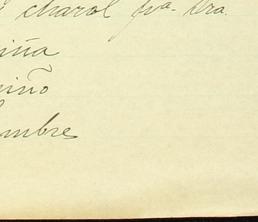 charol pra. Sra.
iña
niño
ombres